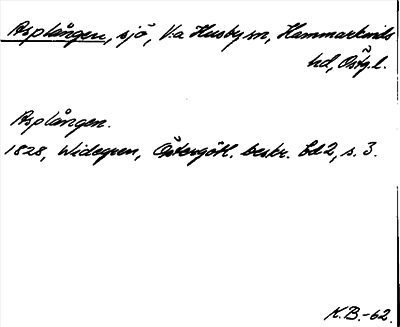 Asplången, sjö, V:a Husby sn, Hammarkinds
hd, Östg.l.
Asplången.
1828, Widegren, Östergötl. beskr. bd 2, s. 3.
K.B.-62.